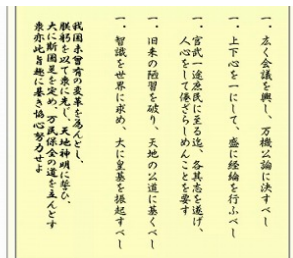 一、広く会議を興し、万機公論に決すべし
一、上下心を一にして、盛に経綸を行ふべし
一、官武一途庶民に至る迄、各其志を遂げ、
人心をして倦ざらしめんことを要す
一、旧来の陋習を破り、天地の公道に基くべし
一、智識を世界に求め、大に皇基を振起すべし
我国未曾有の変革を為んとし、
朕躬を以て衆に先じ、天地神明に誓ひ、
大に斯国是を定め、万民保全の道を立んとす
衆亦此旨趣に基き協心努力せよ